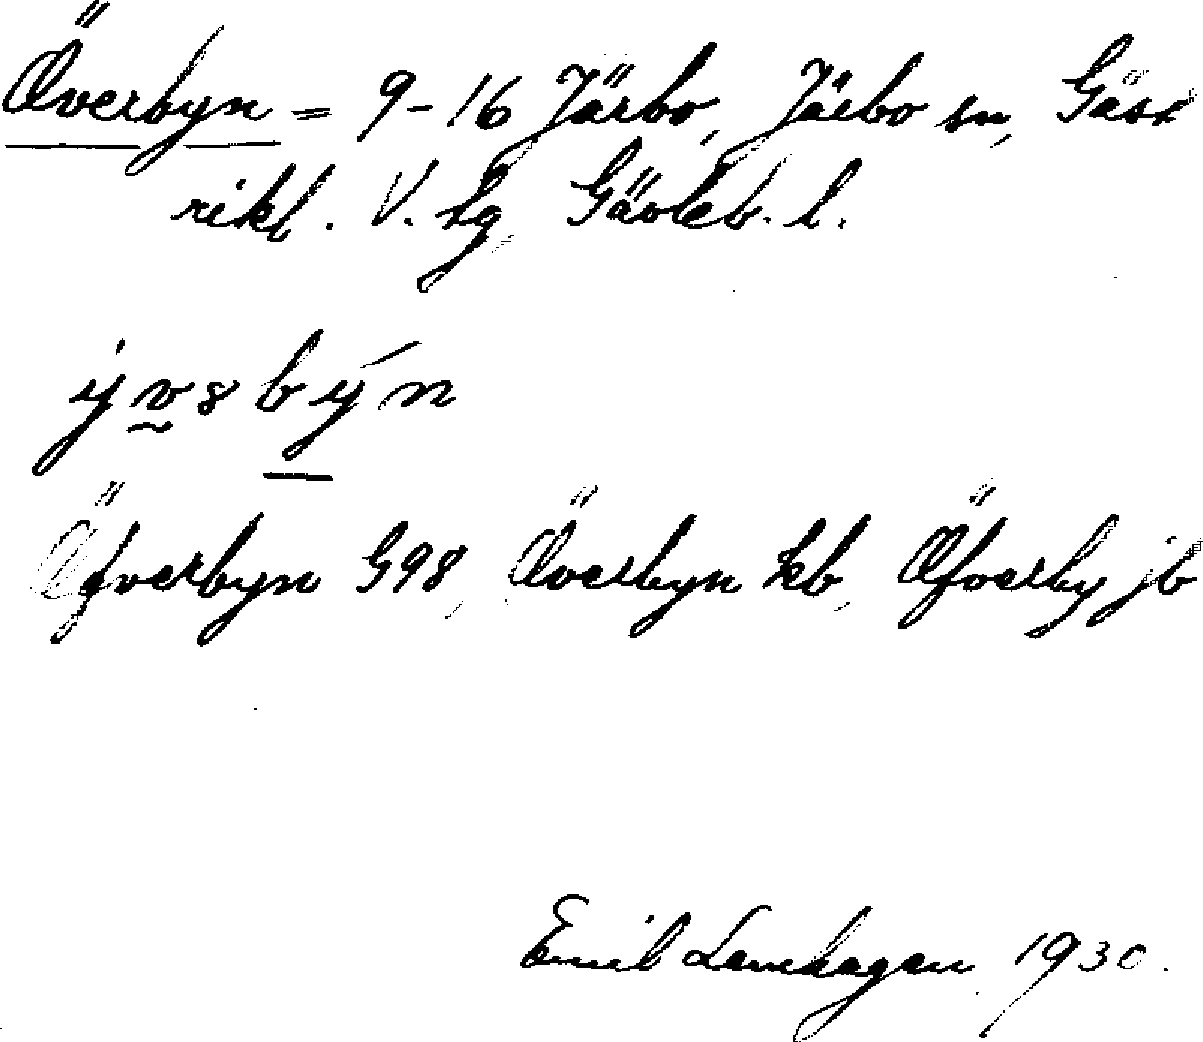 Överbyn = 9-16 Järbo, Järbo sn, Gäst
rikl. V. tg, Gävleb. l.
Öfverbyn G98, Överbyn kb, Öfverby jb
Emil 1930.